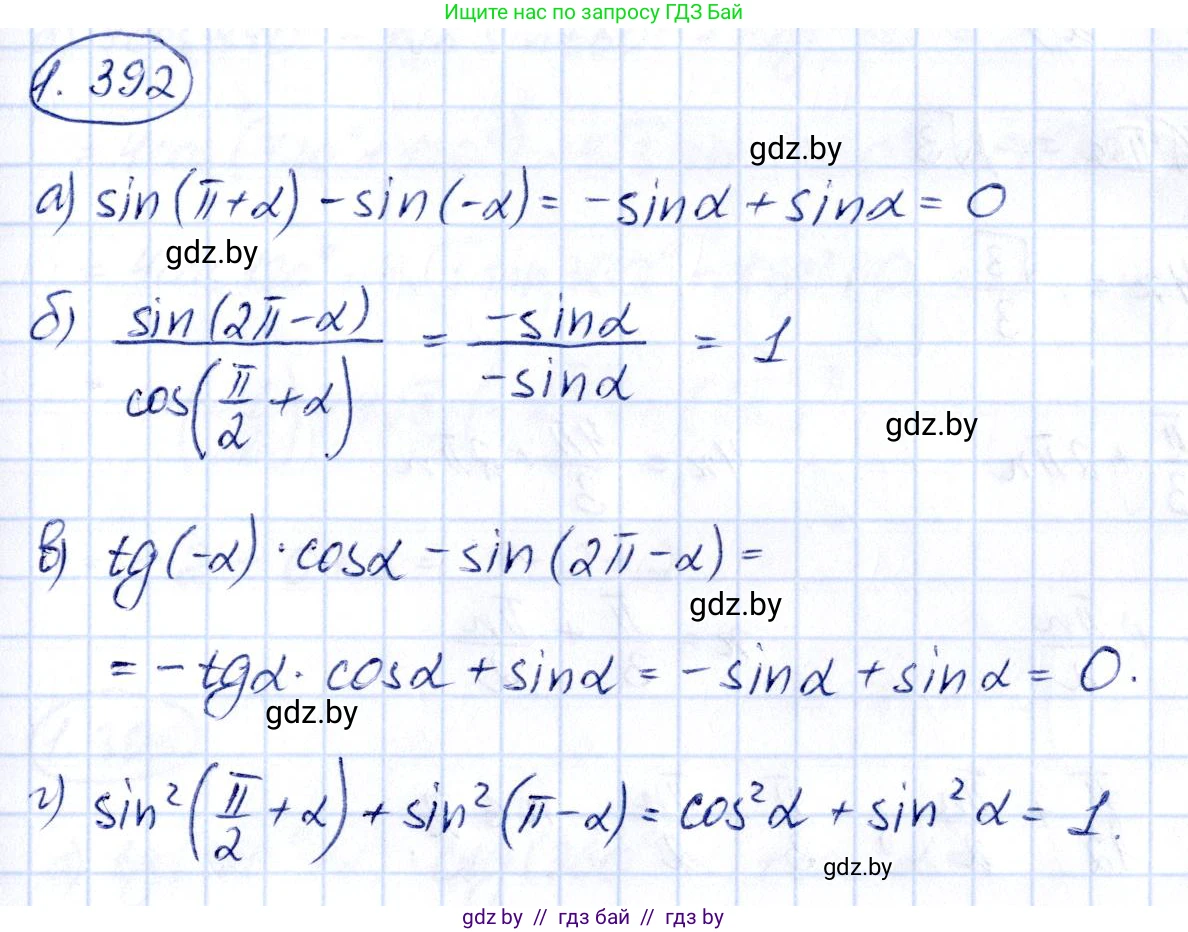 Ищите нас по запросу ГДЗ Бай
1. 392
gdz.by
а) sin(π+α) - sin(-α) = -sinα + sinα = 0
gdz.by
б) sin(2π-α) / cos(π/2 + α) = -sinα / -sinα = 1
gdz.by
в) tg(-α) · cosα - sin(2π-α) =
gdz.by
= -tgα · cosα + sinα = -sinα + sinα = 0.
gdz.by
г) sin²(π/2 + α) + sin²(π-α) = cos²α + sin²α = 1.
gdz.by
gdz by // гдз бай // гдз by